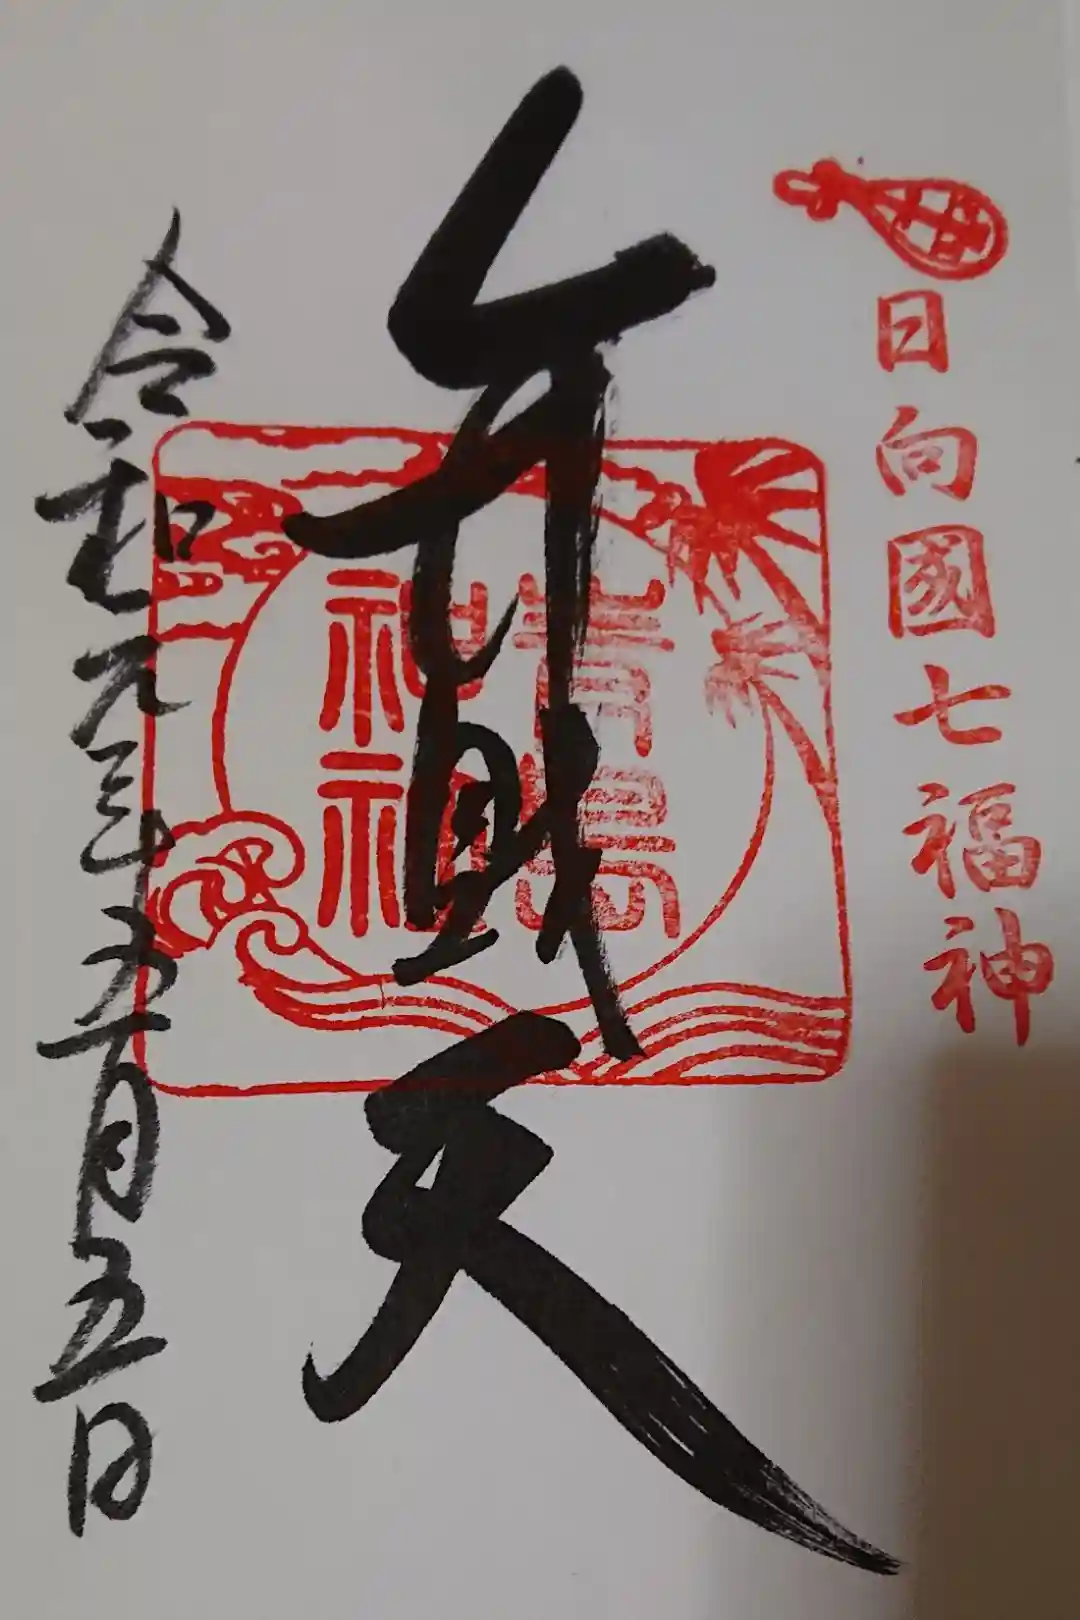 日向國七福神
弁財天
青島
神社
令和元年五月五日